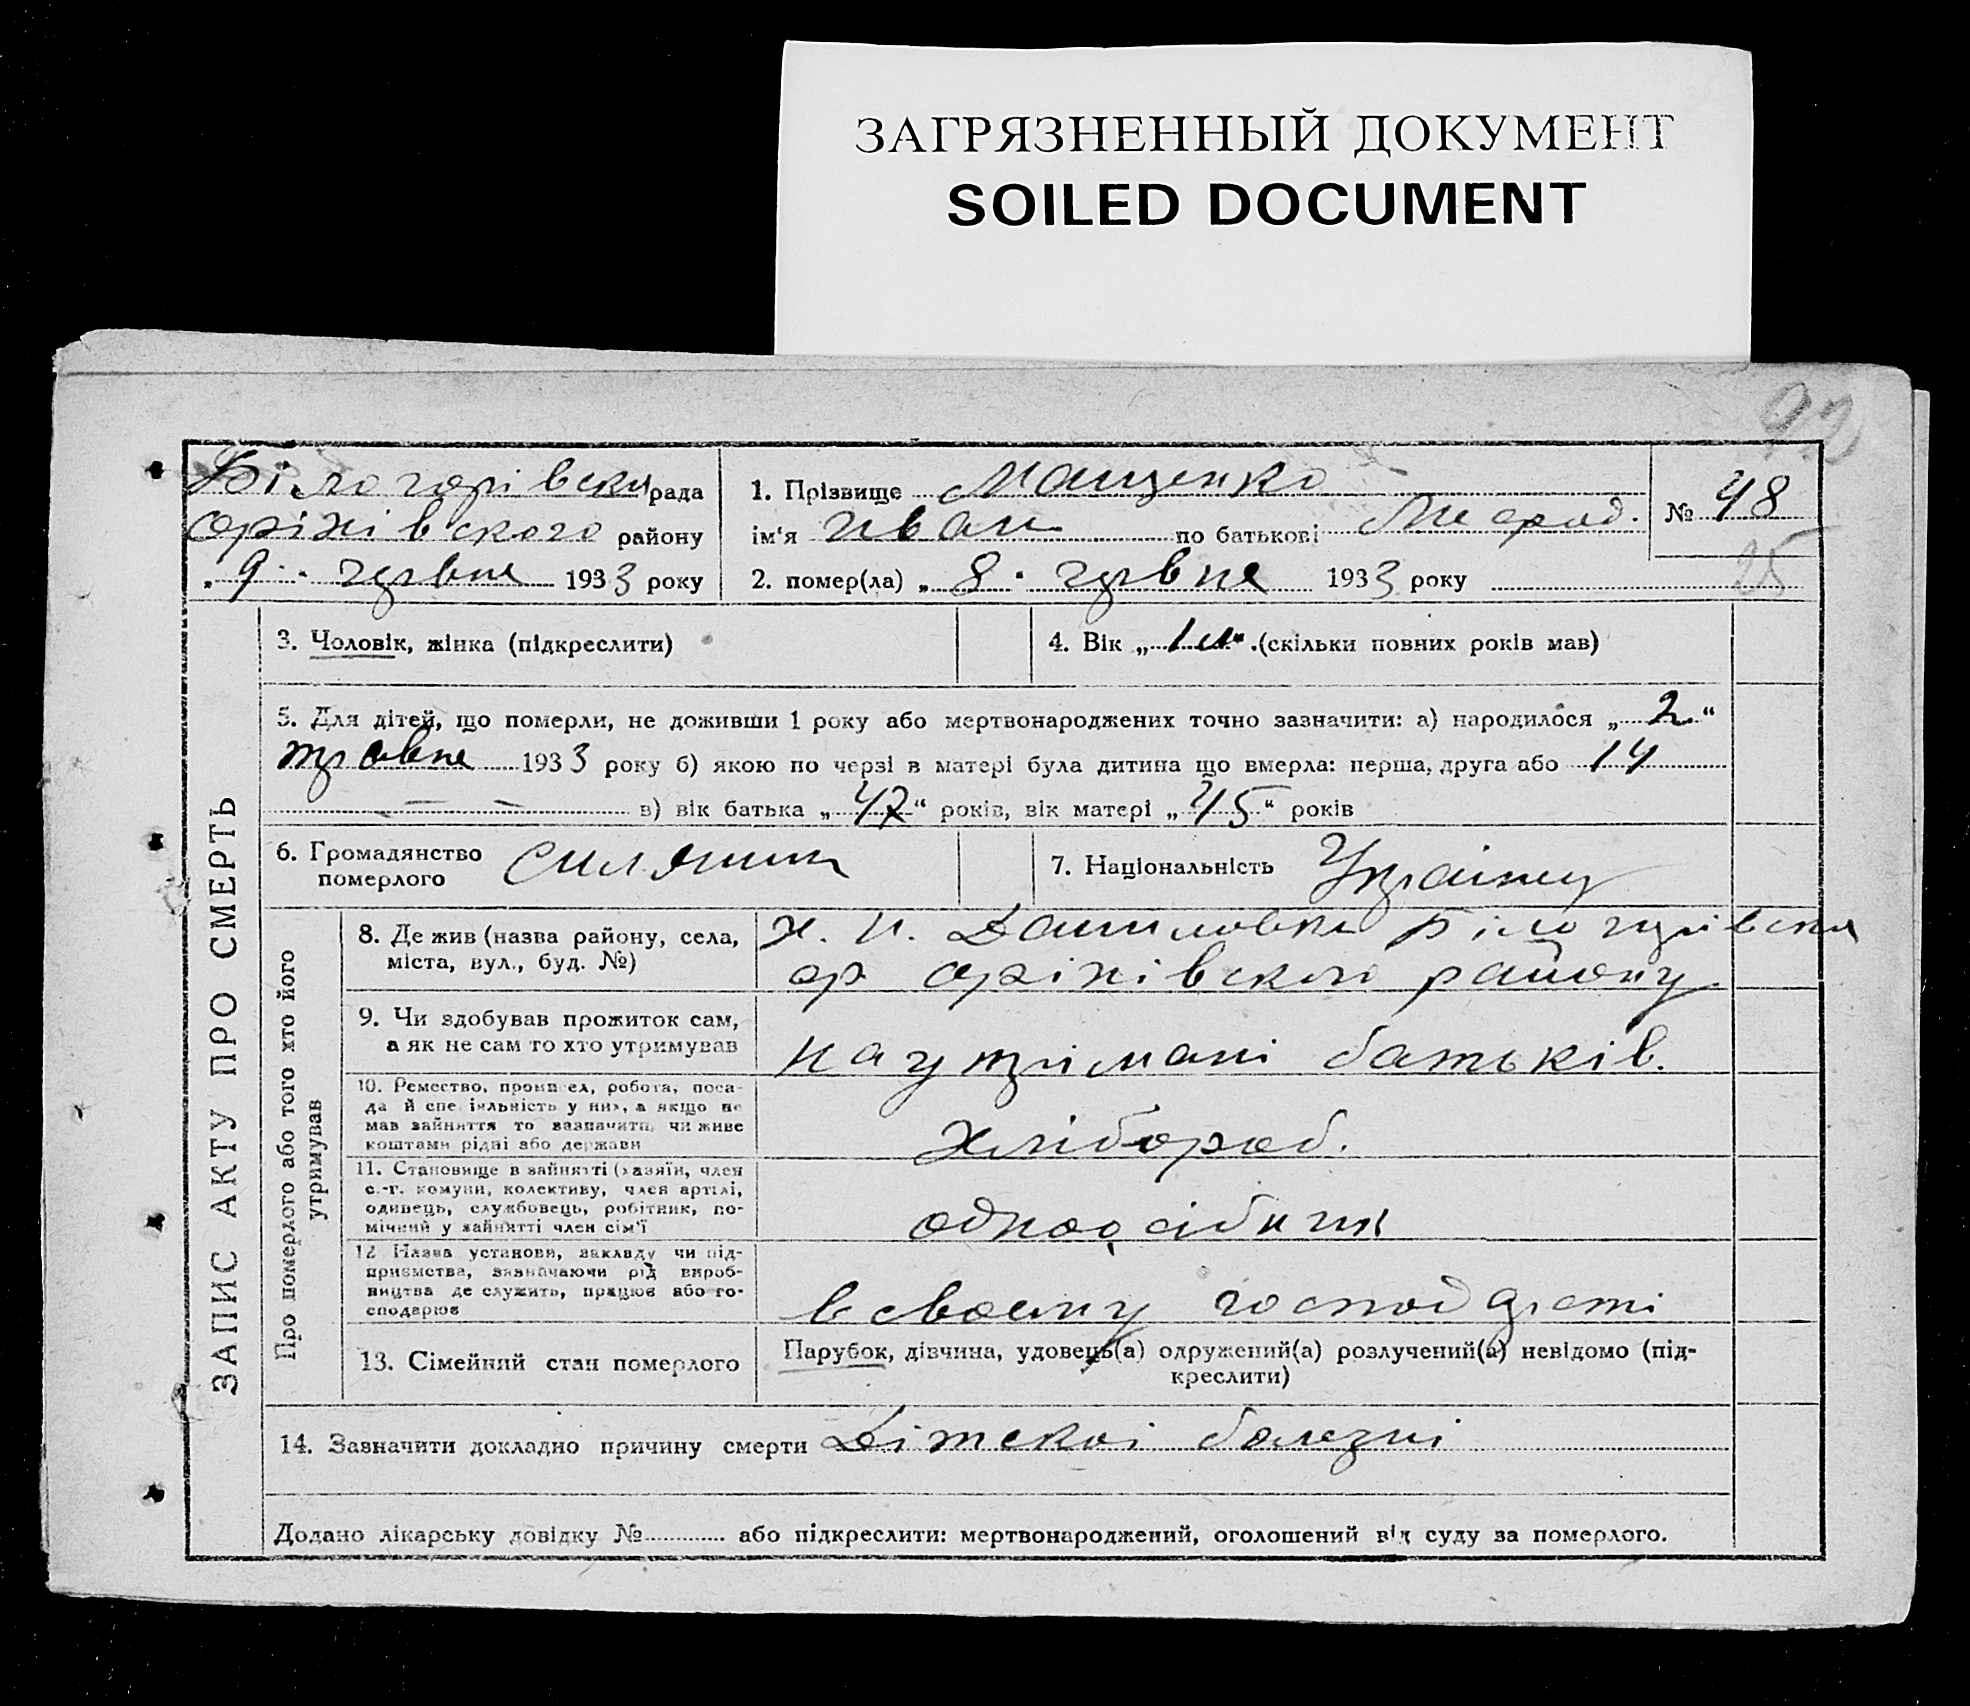 ЗАГРЯЗНЕННЫЙ ДОКУМЕНТ
SOILED DOCUMENT
Білогорівска рада
оріхівского району
„ 9 “ червня 1933 року
1. Прізвище Мащенко
ім'я Иван по батькові Мефод.
2. помер(ла) „ 8 “ червня 1933 року
№ 48
25
ЗАПИС АКТУ ПРО СМЕРТЬ
3. Чоловік, жінка (підкреслити)
4. Вік „ 1 м “ (скільки повних років мав)
5. Для дітей, що померли, не доживши 1 року або мертвонароджених точно зазначити: а) народилося „ 2 “
травня 1933 року б) якою по черзі в матері була дитина що вмерла: перша, друга або 14
в) вік батька „ 47 “ років, вік матері „ 45 “ років
6. Громадянство
померлого
Силянин
7. Національність Українец
Про померлого або того хто його
утримував
8. Де жив (назва району, села,
міста, вул., буд. №)
х. Н. Даниловка Білогорівска
ср оріхівского району
9. Чи здобував прожиток сам,
а як не сам то хто утримував
на утримані батьків.
10. Ремество, промисел, робота, поса-
да й спеціяльність у них, а якщо не
мав зайняття то зазначити, чи живе
коштами рідні або держави
Хлібороб.
11. Становище в зайнятті (хазяїн, член
с.-г. комуни, колективу, член артілі,
одинець, службовець, робітник, по-
мічний у зайнятті член сім'ї
одноосібник
12 Назва установи, закладу чи під-
приємства, зазначаючи рід вироб-
ництва де служить, працює або го-
сподарює
в своєму господарстві
13. Сімейний стан померлого
Парубок, дівчина, удовець(а) одружений(а) розлучений(а) невідомо (під-
креслити)
14. Зазначити докладно причину смерти Дітскоі болезні
Додано лікарську довідку № або підкреслити: мертвонароджений, оголошений від суду за померлого.